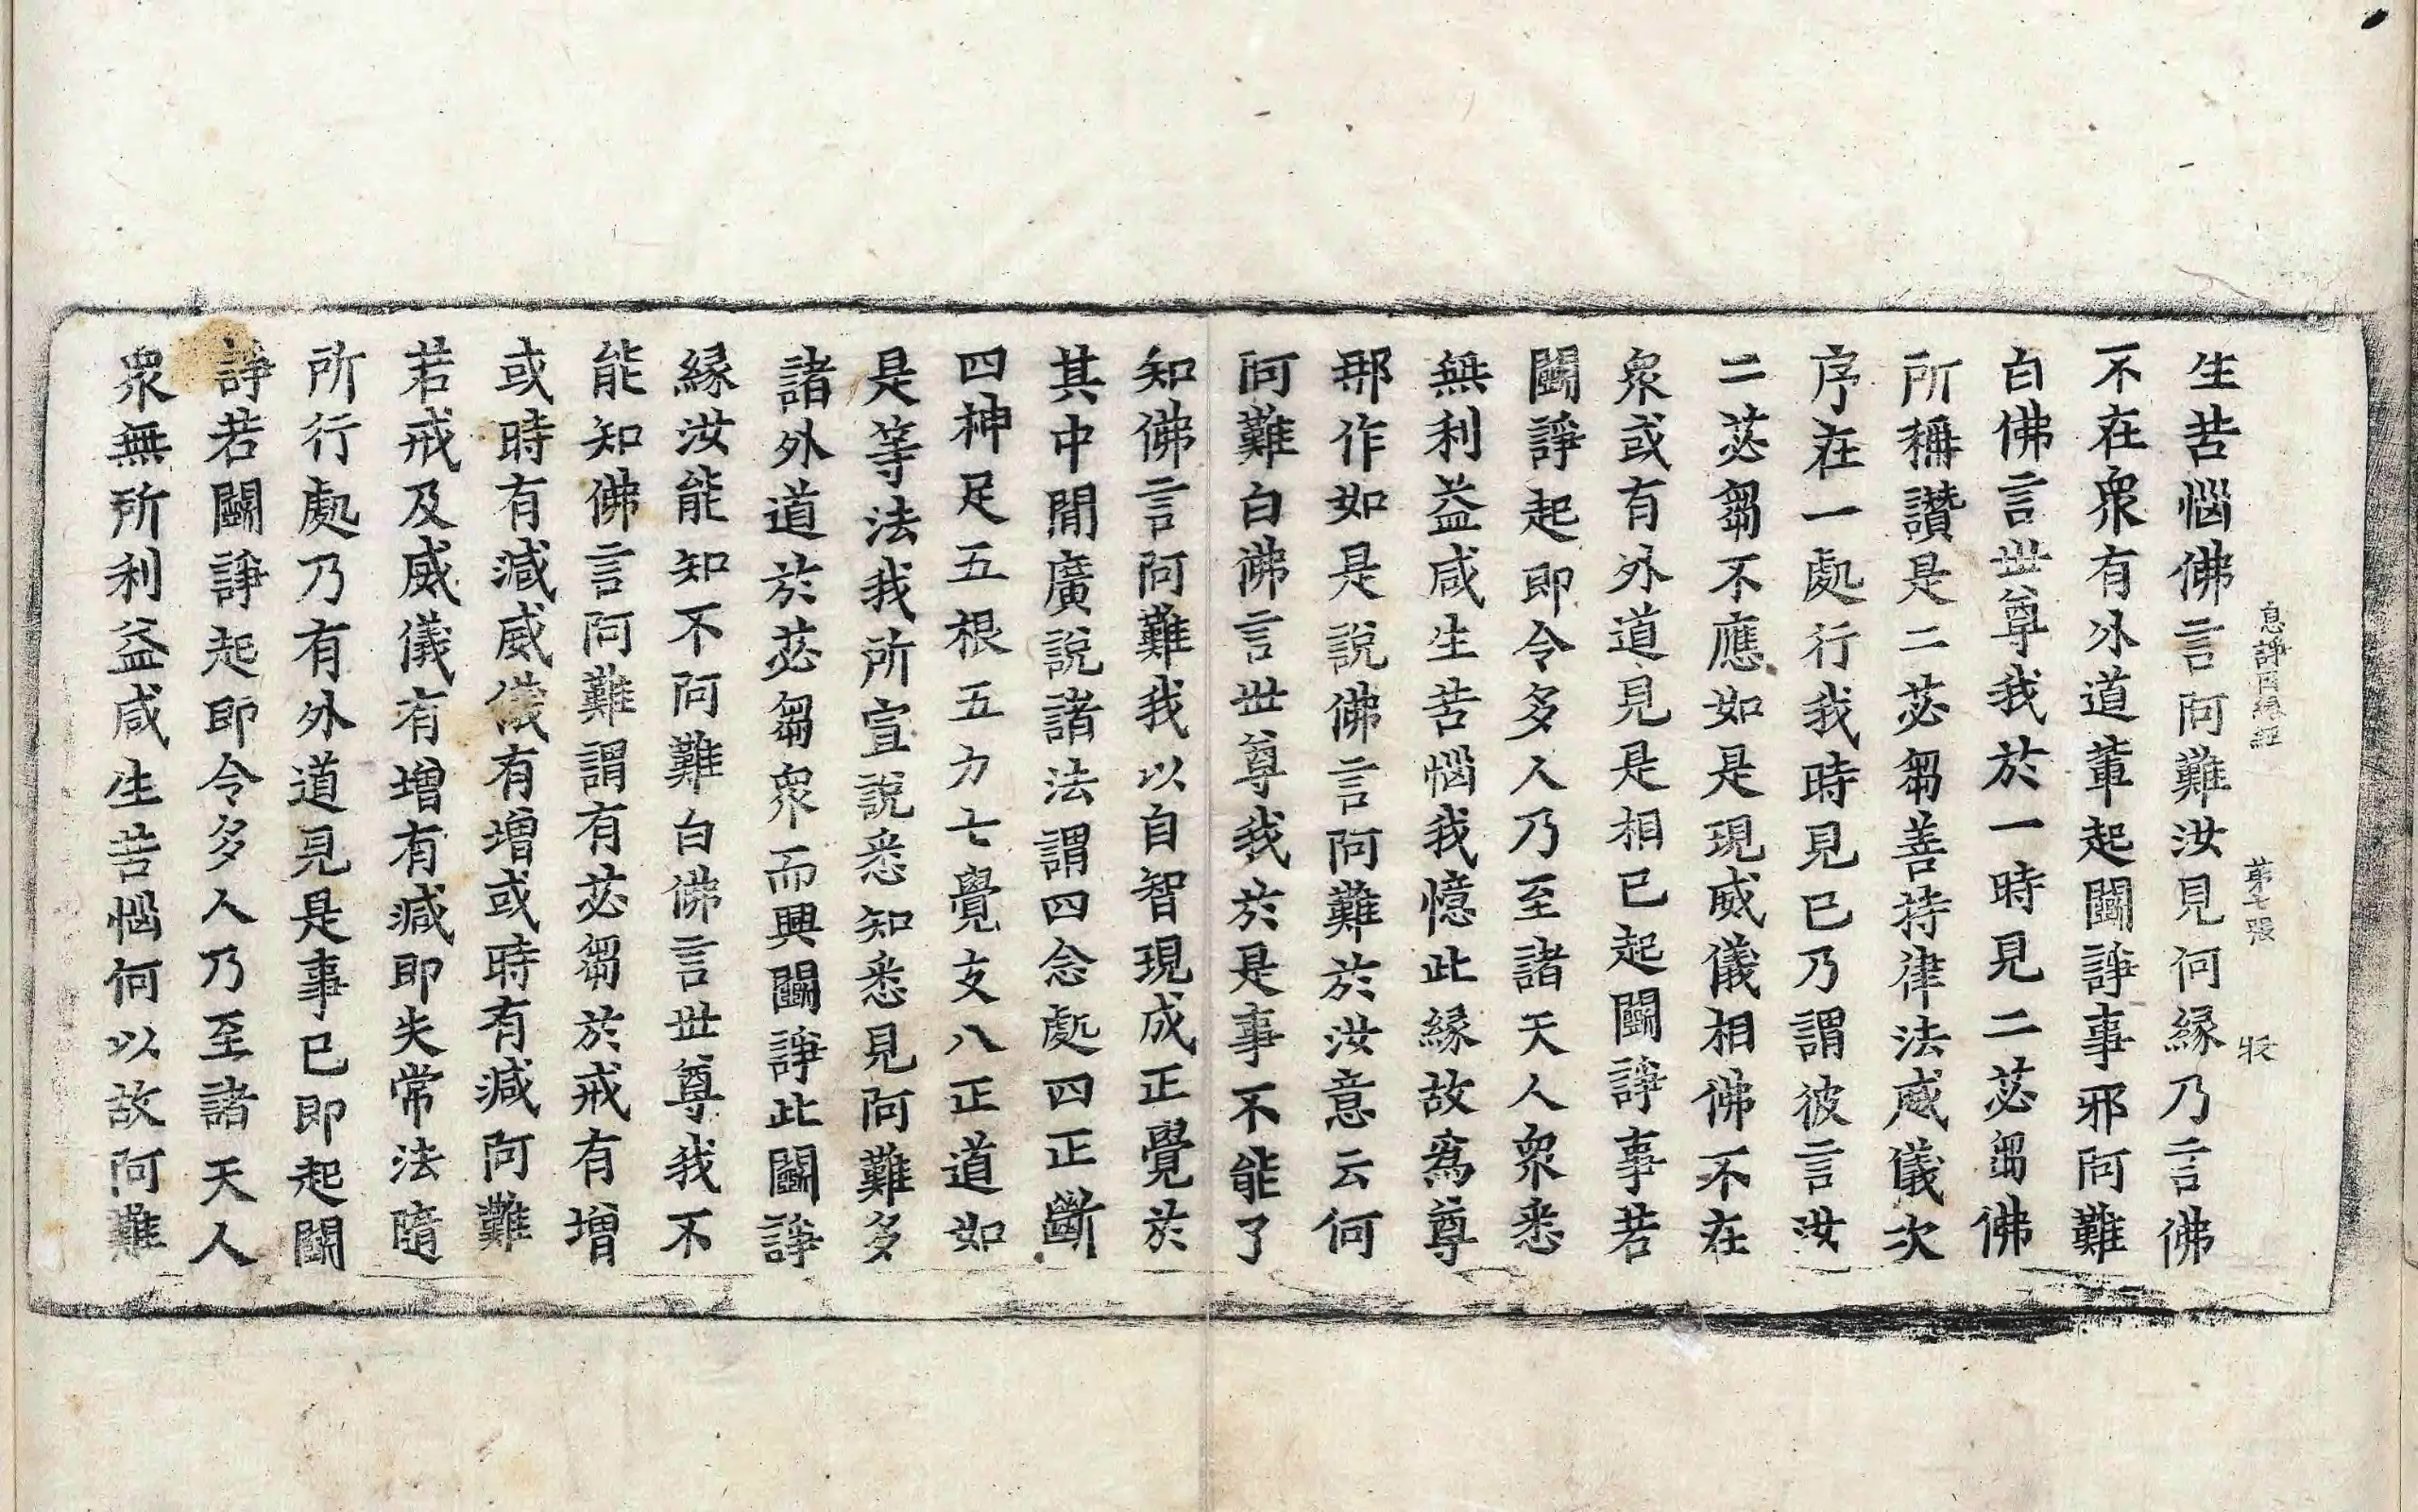 息諍因緣經 第七張 㳂
生苦惱佛言阿難汝見何緣乃言佛
不在衆有外道輩起鬪諍事邪阿難
白佛言世尊我於一時見二苾芻佛
所稱讚是二苾芻善持律法威儀次
序在一處行我時見已乃謂彼言汝
二苾芻不應如是現威儀相佛不在
衆或有外道見是相已起鬪諍事若
鬪諍起即令多人乃至諸天人衆悉
無利益咸生苦惱我憶此緣故爲尊
那作如是說佛言阿難於汝意云何
阿難白佛言世尊我於是事不能了
知佛言阿難我以自智現成正覺於
其中間廣說諸法謂四念處四正斷
四神足五根五力七覺支八正道如
是等法我所宣說悉知悉見阿難多
諸外道於苾芻衆而興鬪諍此鬪諍
緣汝能知不阿難白佛言世尊我不
能知佛言阿難謂有苾芻於戒有增
或時有減威儀有增或時有減阿難
若戒及威儀有增有減即失常法隨
所行處乃有外道見是事已即起鬪
諍若鬪諍起即令多人乃至諸天人
衆無所利益咸生苦惱何以故阿難